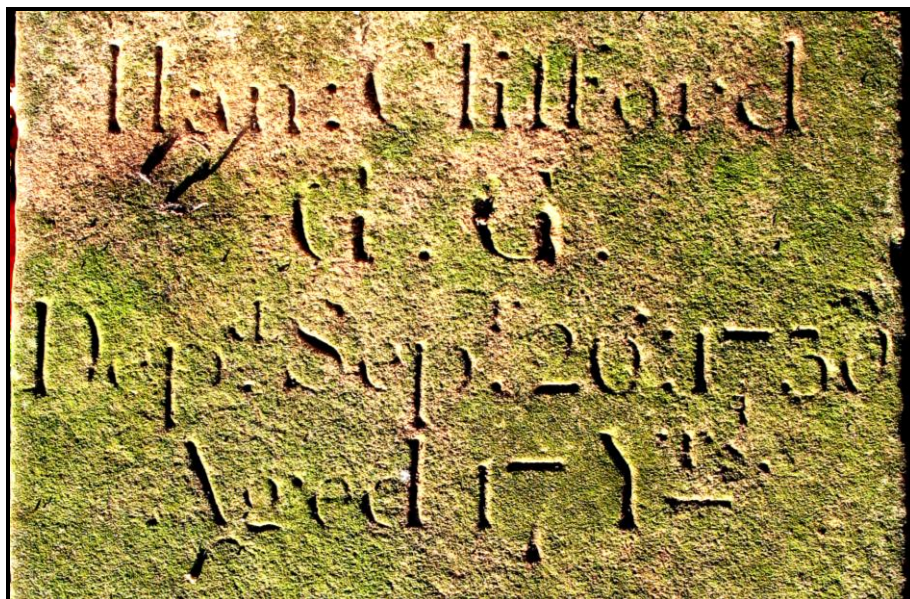 Han: Clifford
G. G.
Dep.t Sep.t 26: 1756
Aged 17 Yrs.